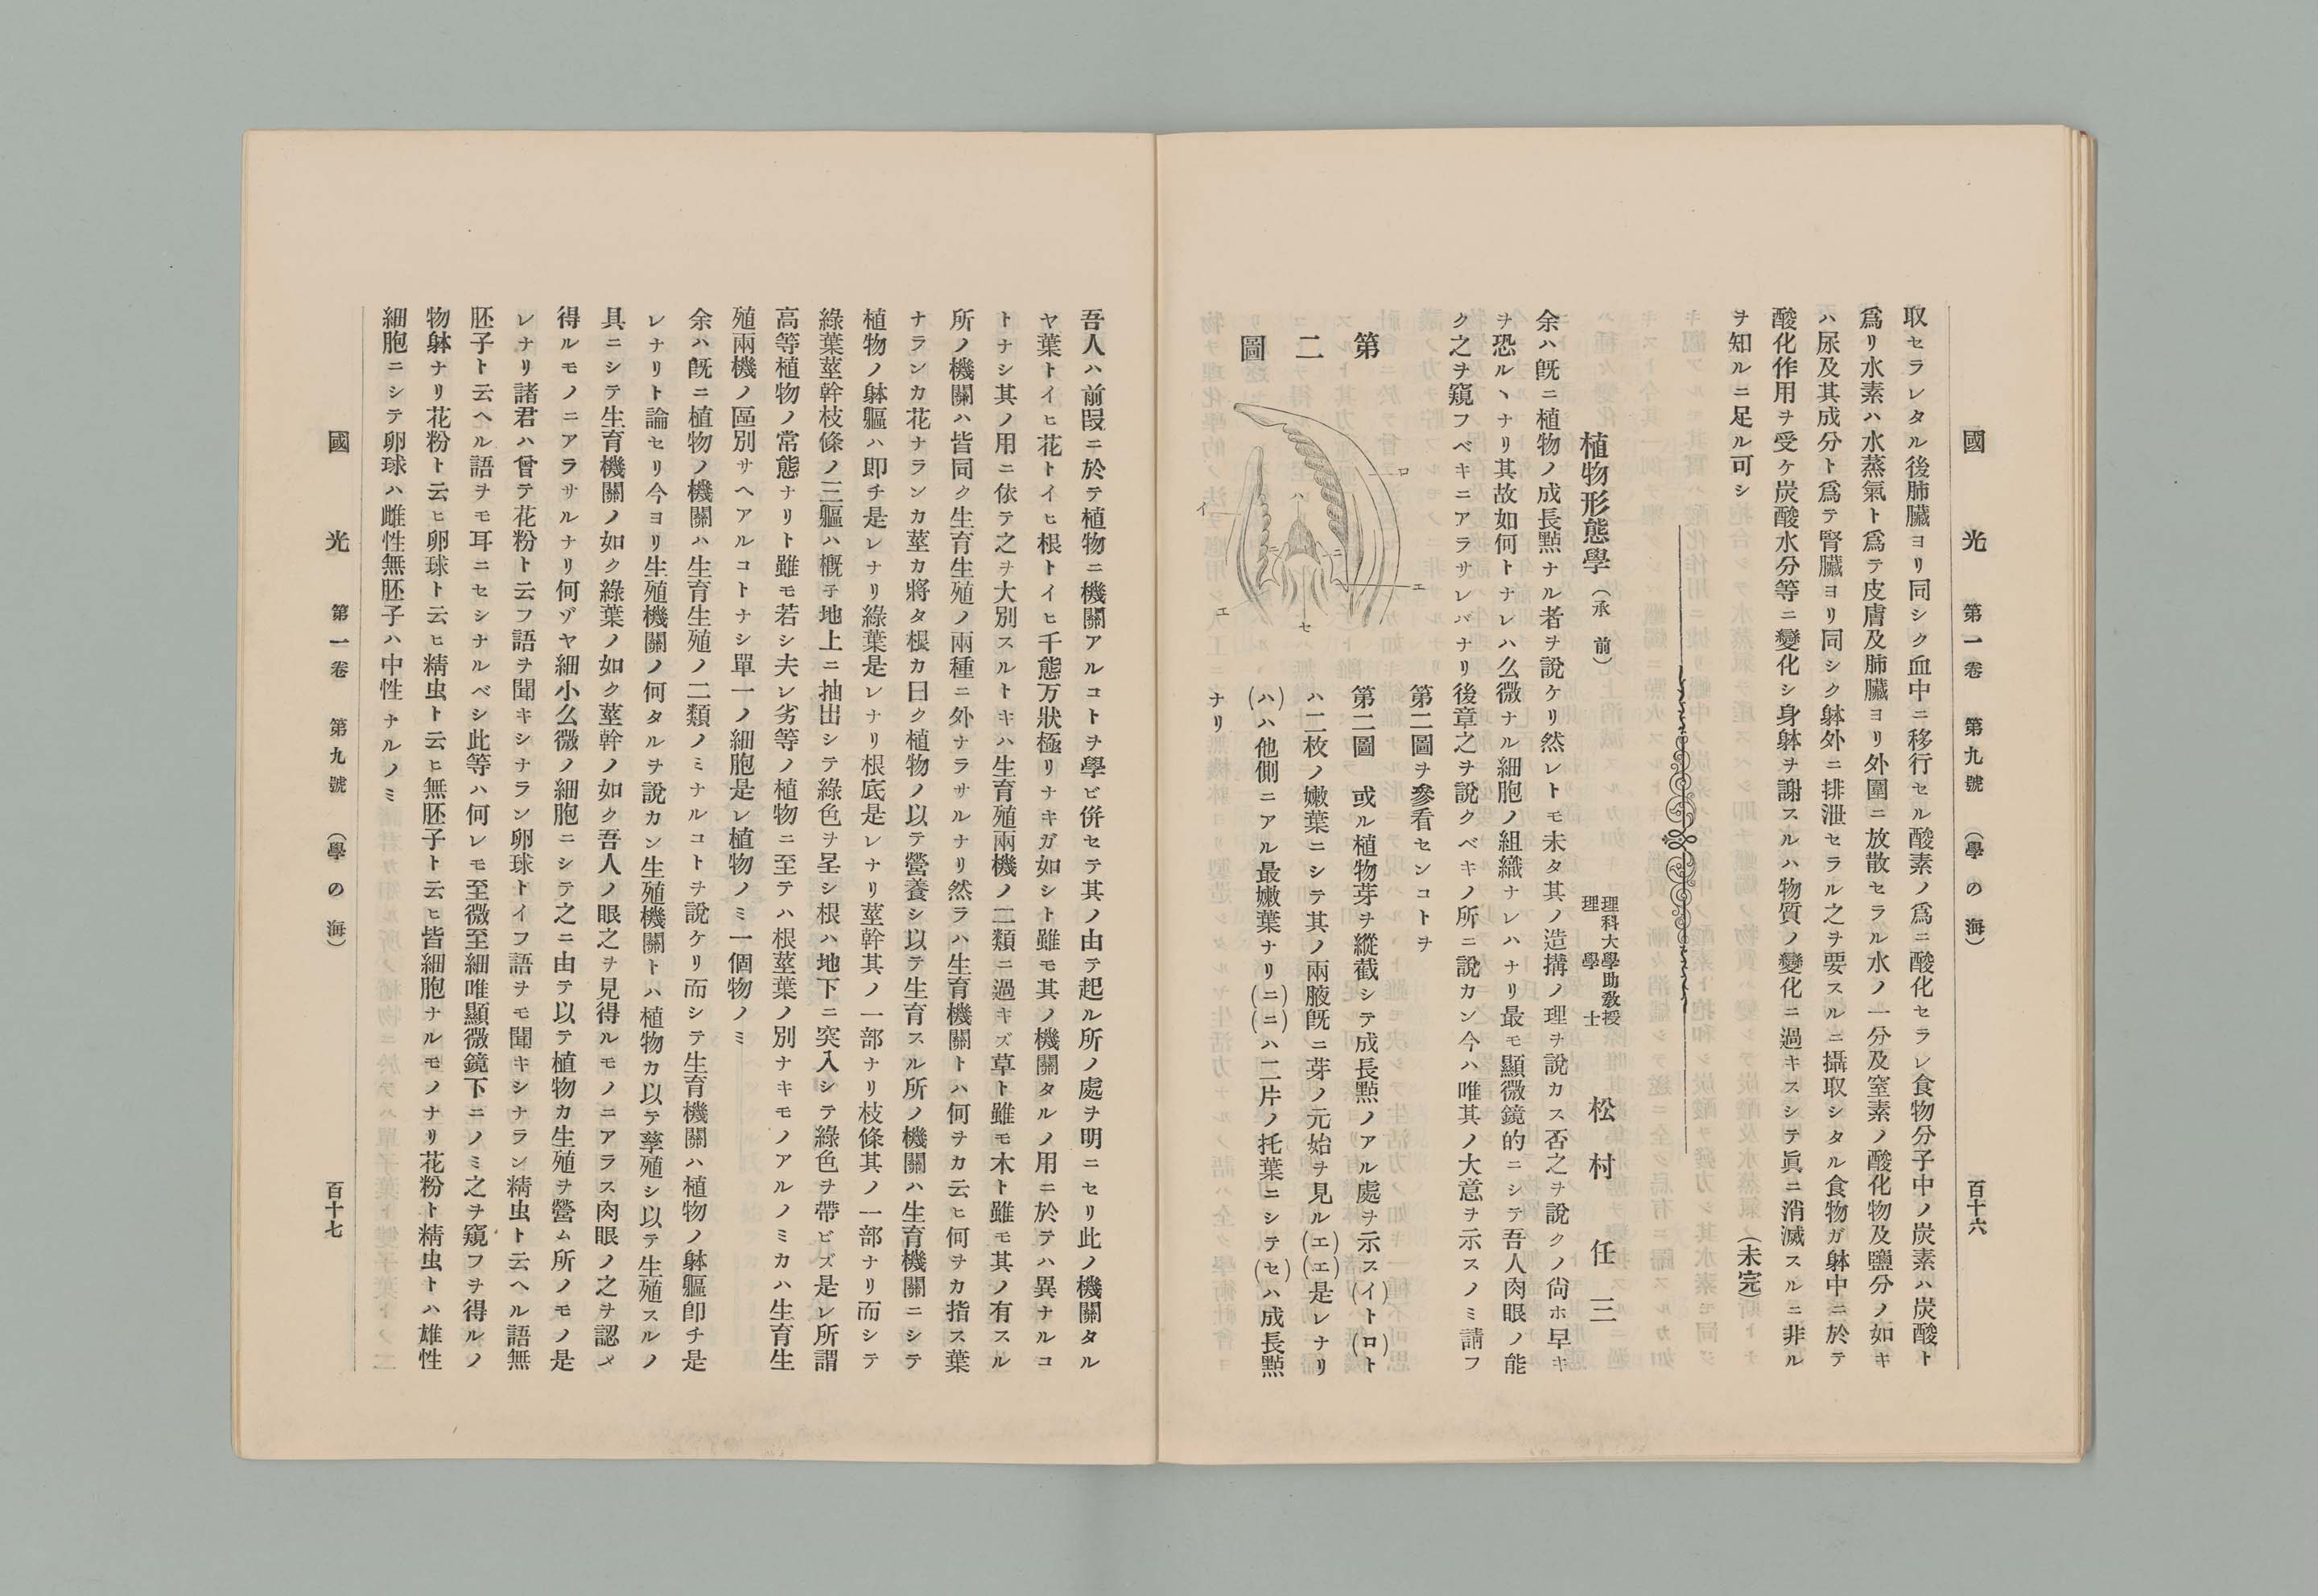 國光 第一卷 第九號 (學の海) 百十六
取セラレタル後肺臟ヨリ同シク血中ニ移行セル酸素ノ爲ニ酸化セラレ食物分子中ノ炭素ハ炭酸ト
爲リ水素ハ水蒸氣ト爲テ皮膚及肺臟ヨリ外圍ニ放散セラル水ノ一分及窒素ノ酸化物及鹽分ノ如キ
ハ尿及其成分ト爲テ腎臟ヨリ同シク躰外ニ排泄セラル之ヲ要スルニ攝取シタル食物ガ躰中ニ於テ
酸化作用ヲ受ケ炭酸水分等ニ變化シ身躰ヲ謝スルハ物質ノ變化ニ過キスシテ眞ニ消滅スルニ非ル
ヲ知ルニ足ル可シ (未完)
植物形態學 (承前)
理科大學助敎授
理學士
松村任三
余ハ旣ニ植物ノ成長㸃ナル者ヲ說ケリ然レトモ未タ其ノ造搆ノ理ヲ說カス否之ヲ說クノ尙ホ早キ
ヲ恐ルヽナリ其故如何トナレハ么微ナル細胞ノ組織ナレハナリ最モ顯微鏡的ニシテ吾人肉眼ノ能
ク之ヲ窺フベキニアラサレバナリ後章之ヲ說クベキノ所ニ說カン今ハ唯其ノ大意ヲ示スノミ請フ
第二圖ヲ參看センコトヲ
第二圖
ロ
イ
ハ
ニ
ニ
エ
エ
セ
第二圖 或ル植物芽ヲ縱截シテ成長㸃ノアル處ヲ示ス(イ)ト(ロ)ト
ハ二枚ノ嫩葉ニシテ其ノ兩腋旣ニ芽ノ元始ヲ見ル(エ)(エ)是レナリ
(ハ)ハ他側ニアル最嫩葉ナリ(ニ)(ニ)ハ二片ノ托葉ニシテ(セ)ハ成長㸃
ナリ
吾人ハ前段ニ於テ植物ニ機關アルコトヲ學ビ併セテ其ノ由テ起ル所ノ處ヲ明ニセリ此ノ機關タル
ヤ葉トイヒ花トイヒ根トイヒ千態万狀極リナキガ如シト雖モ其ノ機關タルノ用ニ於テハ異ナルコ
トナシ其ノ用ニ依テ之ヲ大別スルトキハ生育殖兩機ノ二類ニ過キズ草ト雖モ木ト雖モ其ノ有スル
所ノ機關ハ皆同ク生育生殖ノ兩種ニ外ナラサルナリ然ラハ生育機關トハ何ヲカ云ヒ何ヲカ指ス葉
ナランカ花ナランカ莖カ將タ根カ曰ク植物ノ以テ營養シ以テ生育スル所ノ機關ハ生育機關ニシテ
植物ノ躰軀ハ卽チ是レナリ綠葉是レナリ根底是レナリ莖幹其ノ一部ナリ枝條其ノ一部ナリ而シテ
綠葉莖幹枝條ノ三軀ハ槪子地上ニ抽出シテ綠色ヲ呈シ根ハ地下ニ突入シテ綠色ヲ帶ビズ是レ所謂
高等植物ノ常態ナリト雖モ若シ夫レ劣等ノ植物ニ至テハ根莖葉ノ別ナキモノアルノミカハ生育生
殖兩機ノ區別サヘアルコトナシ單一ノ細胞是レ植物ノミ一個物ノミ
余ハ旣ニ植物ノ機關ハ生育生殖ノ二類ノミナルコトヲ說ケリ而シテ生育機關ハ植物ノ躰軀卽チ是
レナリト論セリ今ヨリ生殖機關ノ何タルヲ說カン生殖機關トハ植物カ以テ孳殖シ以テ生殖スルノ
具ニシテ生育機關ノ如ク綠葉ノ如ク莖幹ノ如ク吾人ノ眼之ヲ見得ルモノニアラス肉眼ノ之ヲ認メ
得ルモノニアラサルナリ何ゾヤ細小么微ノ細胞ニシテ之ニ由テ以テ植物カ生殖ヲ營ム所ノモノ是
レナリ諸君ハ曾テ花粉ト云フ語ヲ聞キシナラン卵球トイフ語ヲモ聞キシナラン精虫ト云ヘル語無
胚子ト云ヘル語ヲモ耳ニセシナルベシ此等ハ何レモ至微至細唯顯微鏡下ニノミ之ヲ窺フヲ得ルノ
物躰ナリ花粉ト云ヒ卵球ト云ヒ精虫ト云ヒ無胚子ト云ヒ皆細胞ナルモノナリ花粉ト精虫トハ雄性
細胞ニシテ卵球ハ雌性無胚子ハ中性ナルノミ
國光 第一卷 第九號 (學の海) 百十七